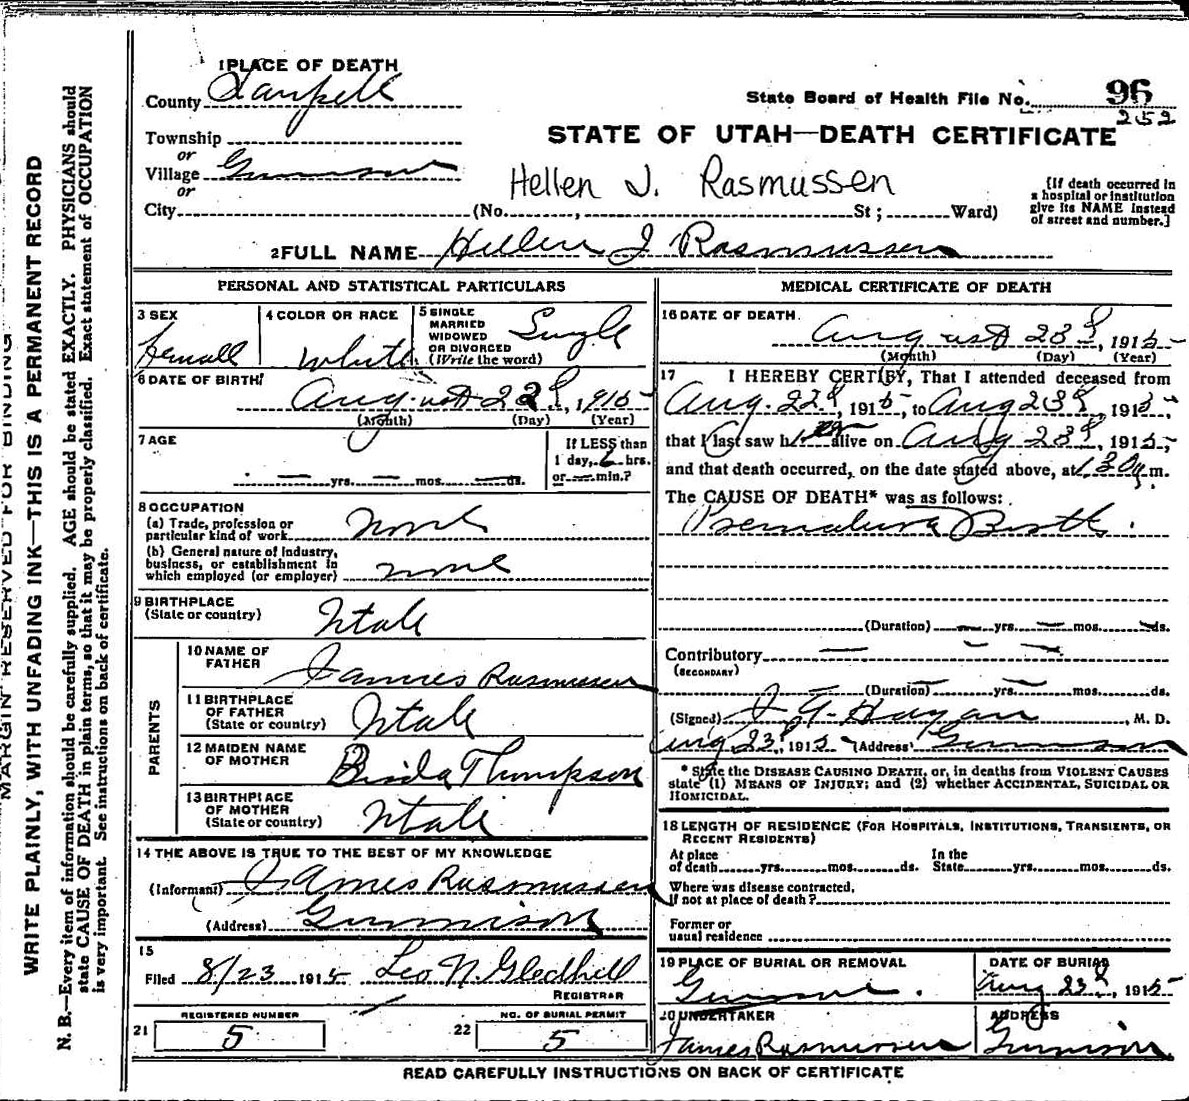 1 PLACE OF DEATH
County Sanpete
State Board of Health File No. 96
252
Township
or
Village Gunnison
or
STATE OF UTAH—DEATH CERTIFICATE
Hellen J. Rasmussen
City (No. , St ; Ward)
[If death occurred in a hospital or institution give its NAME instead of street and number.]
2 FULL NAME Hellen J Rasmussen
PERSONAL AND STATISTICAL PARTICULARS
3 SEX
Femall
4 COLOR OR RACE
White
5 SINGLE
MARRIED
WIDOWED
OR DIVORCED
(Write the word)
Single
6 DATE OF BIRTH
August 22d, 1915
(Month) (Day) (Year)
7 AGE
yrs. mos. ds.
If LESS than
1 day, hrs.
or min.?
8 OCCUPATION
(a) Trade, profession or
particular kind of work none
(b) General nature of industry,
business, or establishment in
which employed (or employer) none
9 BIRTHPLACE
(State or country) Utah
PARENTS
10 NAME OF
FATHER James Rasmussen
11 BIRTHPLACE
OF FATHER
(State or country) Utah
12 MAIDEN NAME
OF MOTHER Thompson
13 BIRTHPLACE
OF MOTHER
(State or country) Utah
14 THE ABOVE IS TRUE TO THE BEST OF MY KNOWLEDGE
(Informant) James Rasmussen
(Address) Gunnison
15
Filed 8/23 1915 Leo N. Gledhill
REGISTRAR
REGISTERED NUMBER
21 5
NO. OF BURIAL PERMIT
22 5
MEDICAL CERTIFICATE OF DEATH
16 DATE OF DEATH
August 23d, 1915
(Month) (Day) (Year)
17 I HEREBY CERTIFY, That I attended deceased from
Aug. 22d, 1915, to Aug 23d, 1915,
that I last saw her alive on Aug 23d, 1915,
and that death occurred, on the date stated above, at 1.30 m.
The CAUSE OF DEATH* was as follows:
Premature Birth.
(Duration) yrs. mos. ds.
Contributory
(SECONDARY)
(Duration) yrs. mos. ds.
(Signed) Hagan, M. D.
Aug 23, 1915 (Address) Gunnison
* State the DISEASE CAUSING DEATH, or, in deaths from VIOLENT CAUSES
state (1) MEANS OF INJURY; and (2) whether ACCIDENTAL, SUICIDAL OR
HOMICIDAL.
18 LENGTH OF RESIDENCE (FOR HOSPITALS, INSTITUTIONS, TRANSIENTS, OR
RECENT RESIDENTS)
At place In the
of death yrs. mos. ds. State yrs. mos. ds.
Where was disease contracted,
if not at place of death?
Former or
usual residence
19 PLACE OF BURIAL OR REMOVAL
Gunnison.
DATE OF BURIAL
Aug 23d, 1915
20 UNDERTAKER
James Rasmussen
ADDRESS
Gunnison
READ CAREFULLY INSTRUCTIONS ON BACK OF CERTIFICATE
MARGIN RESERVED FOR BINDING
WRITE PLAINLY, WITH UNFADING INK—THIS IS A PERMANENT RECORD
N. B.—Every item of information should be carefully supplied. AGE should be stated EXACTLY. PHYSICIANS should
state CAUSE OF DEATH in plain terms, so that it may be properly classified. Exact statement of OCCUPATION
is very important. See instructions on back of certificate.